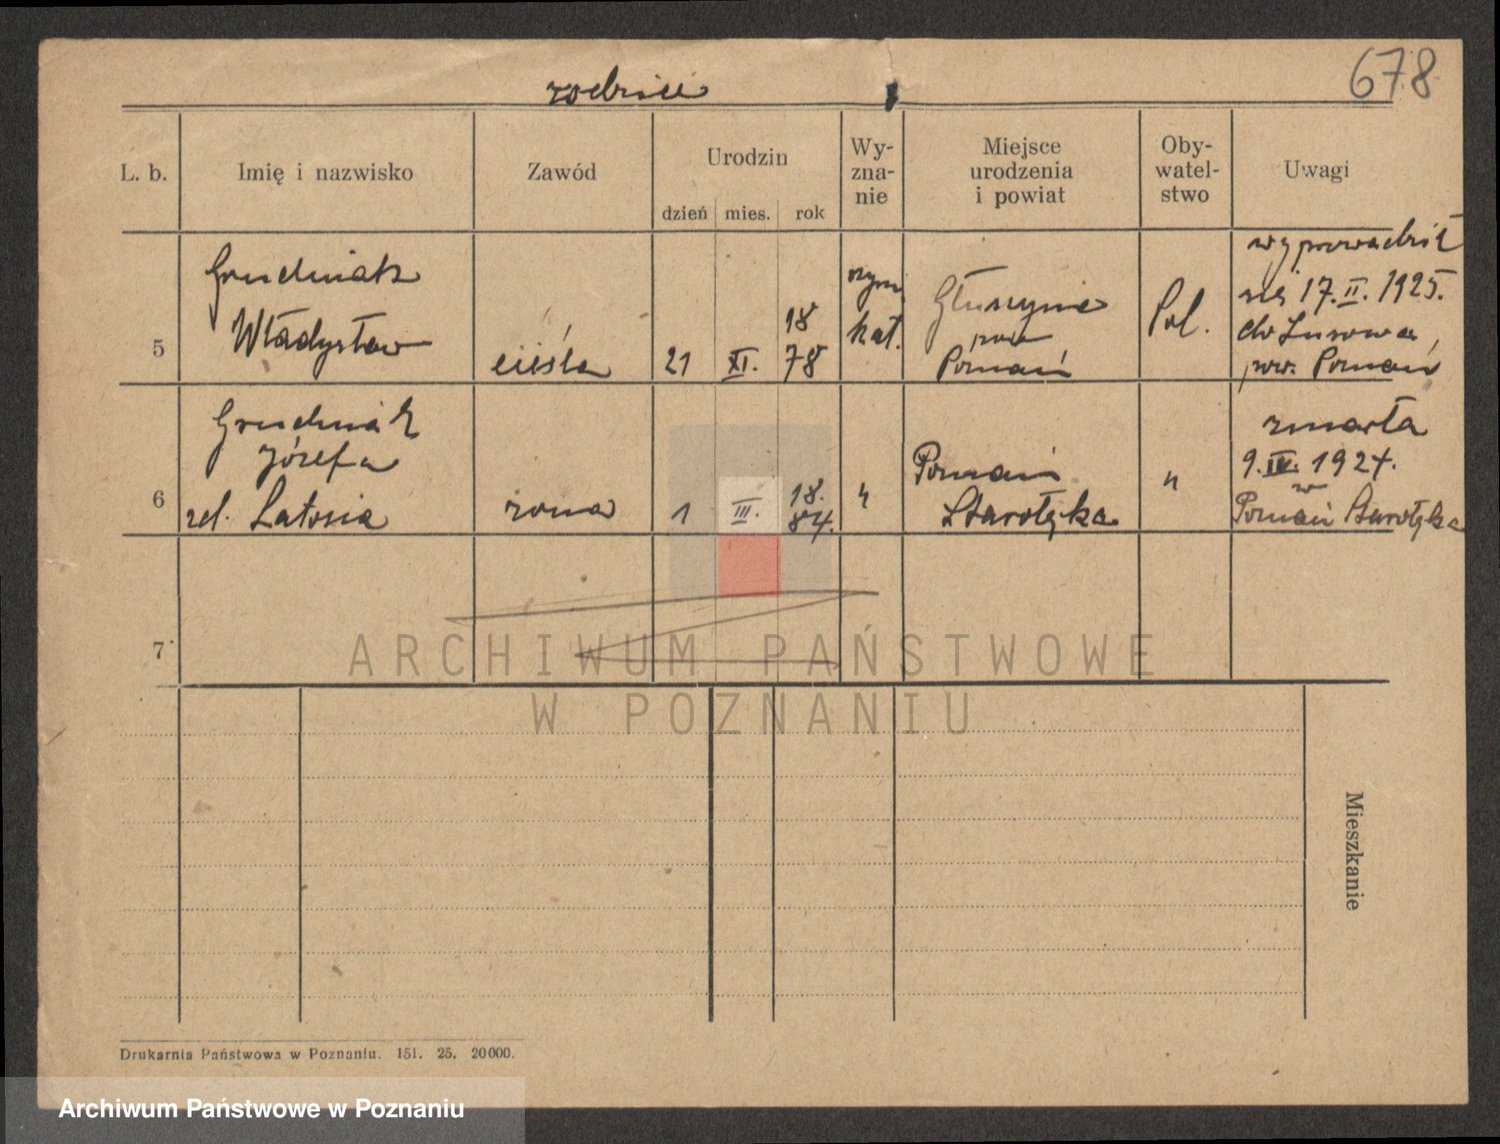 678
rodzice
L. b.
Imię i nazwisko
Zawód
Urodzin
dzień mies. rok
Wy-
zna-
nie
Miejsce
urodzenia
i powiat
Oby-
watel-
stwo
Uwagi
5
Grudniak
Władysław
cieśla
21 XI. 18
78
rzym
kat.
Głuszyna
pow
Poznań
Pol.
wyprowadził
się 17.II.1925.
do Lusowa,
pow. Poznań
6
Grudniak
Józefa
zd. Latosia
żona
1 III. 18.
84.
"
Poznań
Starołęka
"
zmarła
9.IV.1924.
w
Poznań Starołęka
7
ARCHIWUM PAŃSTWOWE
W POZNANIU
Mieszkanie
Drukarnia Państwowa w Poznaniu. 151. 25. 20000.
Archiwum Państwowe w Poznaniu